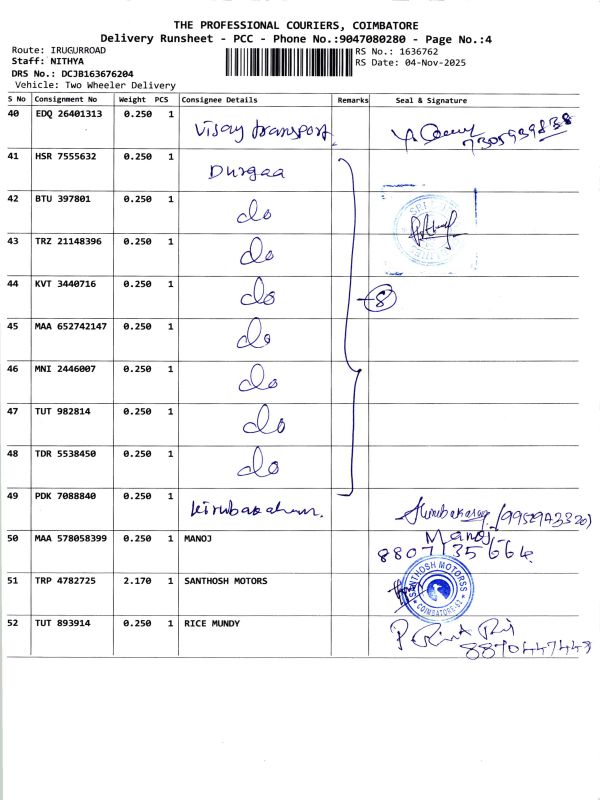 THE PROFESSIONAL COURIERS, COIMBATORE
Delivery Runsheet - PCC - Phone No.:9047080280 - Page No.:4
Route: IRUGURROAD
Staff: NITHYA
DRS No.: DCJB163676204
Vehicle: Two Wheeler Delivery
RS No.: 1636762
RS Date: 04-Nov-2025
S No Consignment No Weight PCS Consignee Details Remarks Seal & Signature
40 EDQ 26401313 0.250 1 Vijay transport. 7305939838
41 HSR 7555632 0.250 1 Durgaa
42 BTU 397801 0.250 1 do
43 TRZ 21148396 0.250 1 do
44 KVT 3440716 0.250 1 do 8
45 MAA 652742147 0.250 1 do
46 MNI 2446007 0.250 1 do
47 TUT 982814 0.250 1 do
48 TDR 5538450 0.250 1 do
49 PDK 7088840 0.250 1 (9952943320)
50 MAA 578058399 0.250 1 MANOJ Manoj
8807135664
51 TRP 4782725 2.170 1 SANTHOSH MOTORS SANTHOSH MOTORSS
52 TUT 893914 0.250 1 RICE MUNDY
8870447449